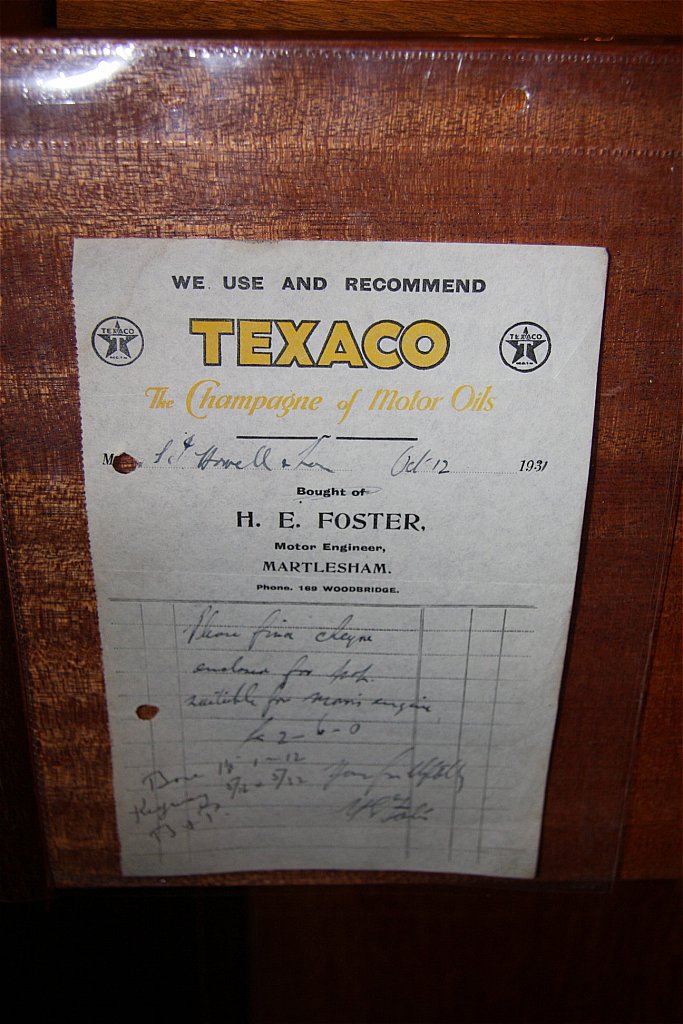 WE USE AND RECOMMEND
TEXACO
TEXACO
TEXACO
The Champagne of Motor Oils
M Howell & Son Oct 12 1931
Bought of
H. E. FOSTER,
Motor Engineer,
MARTLESHAM.
Phone. 169 WOODBRIDGE.
Please find cheque
enclosed for
suitable for Morris engine
2-6-0
Bore 1-12
Keyway
Yours faithfully